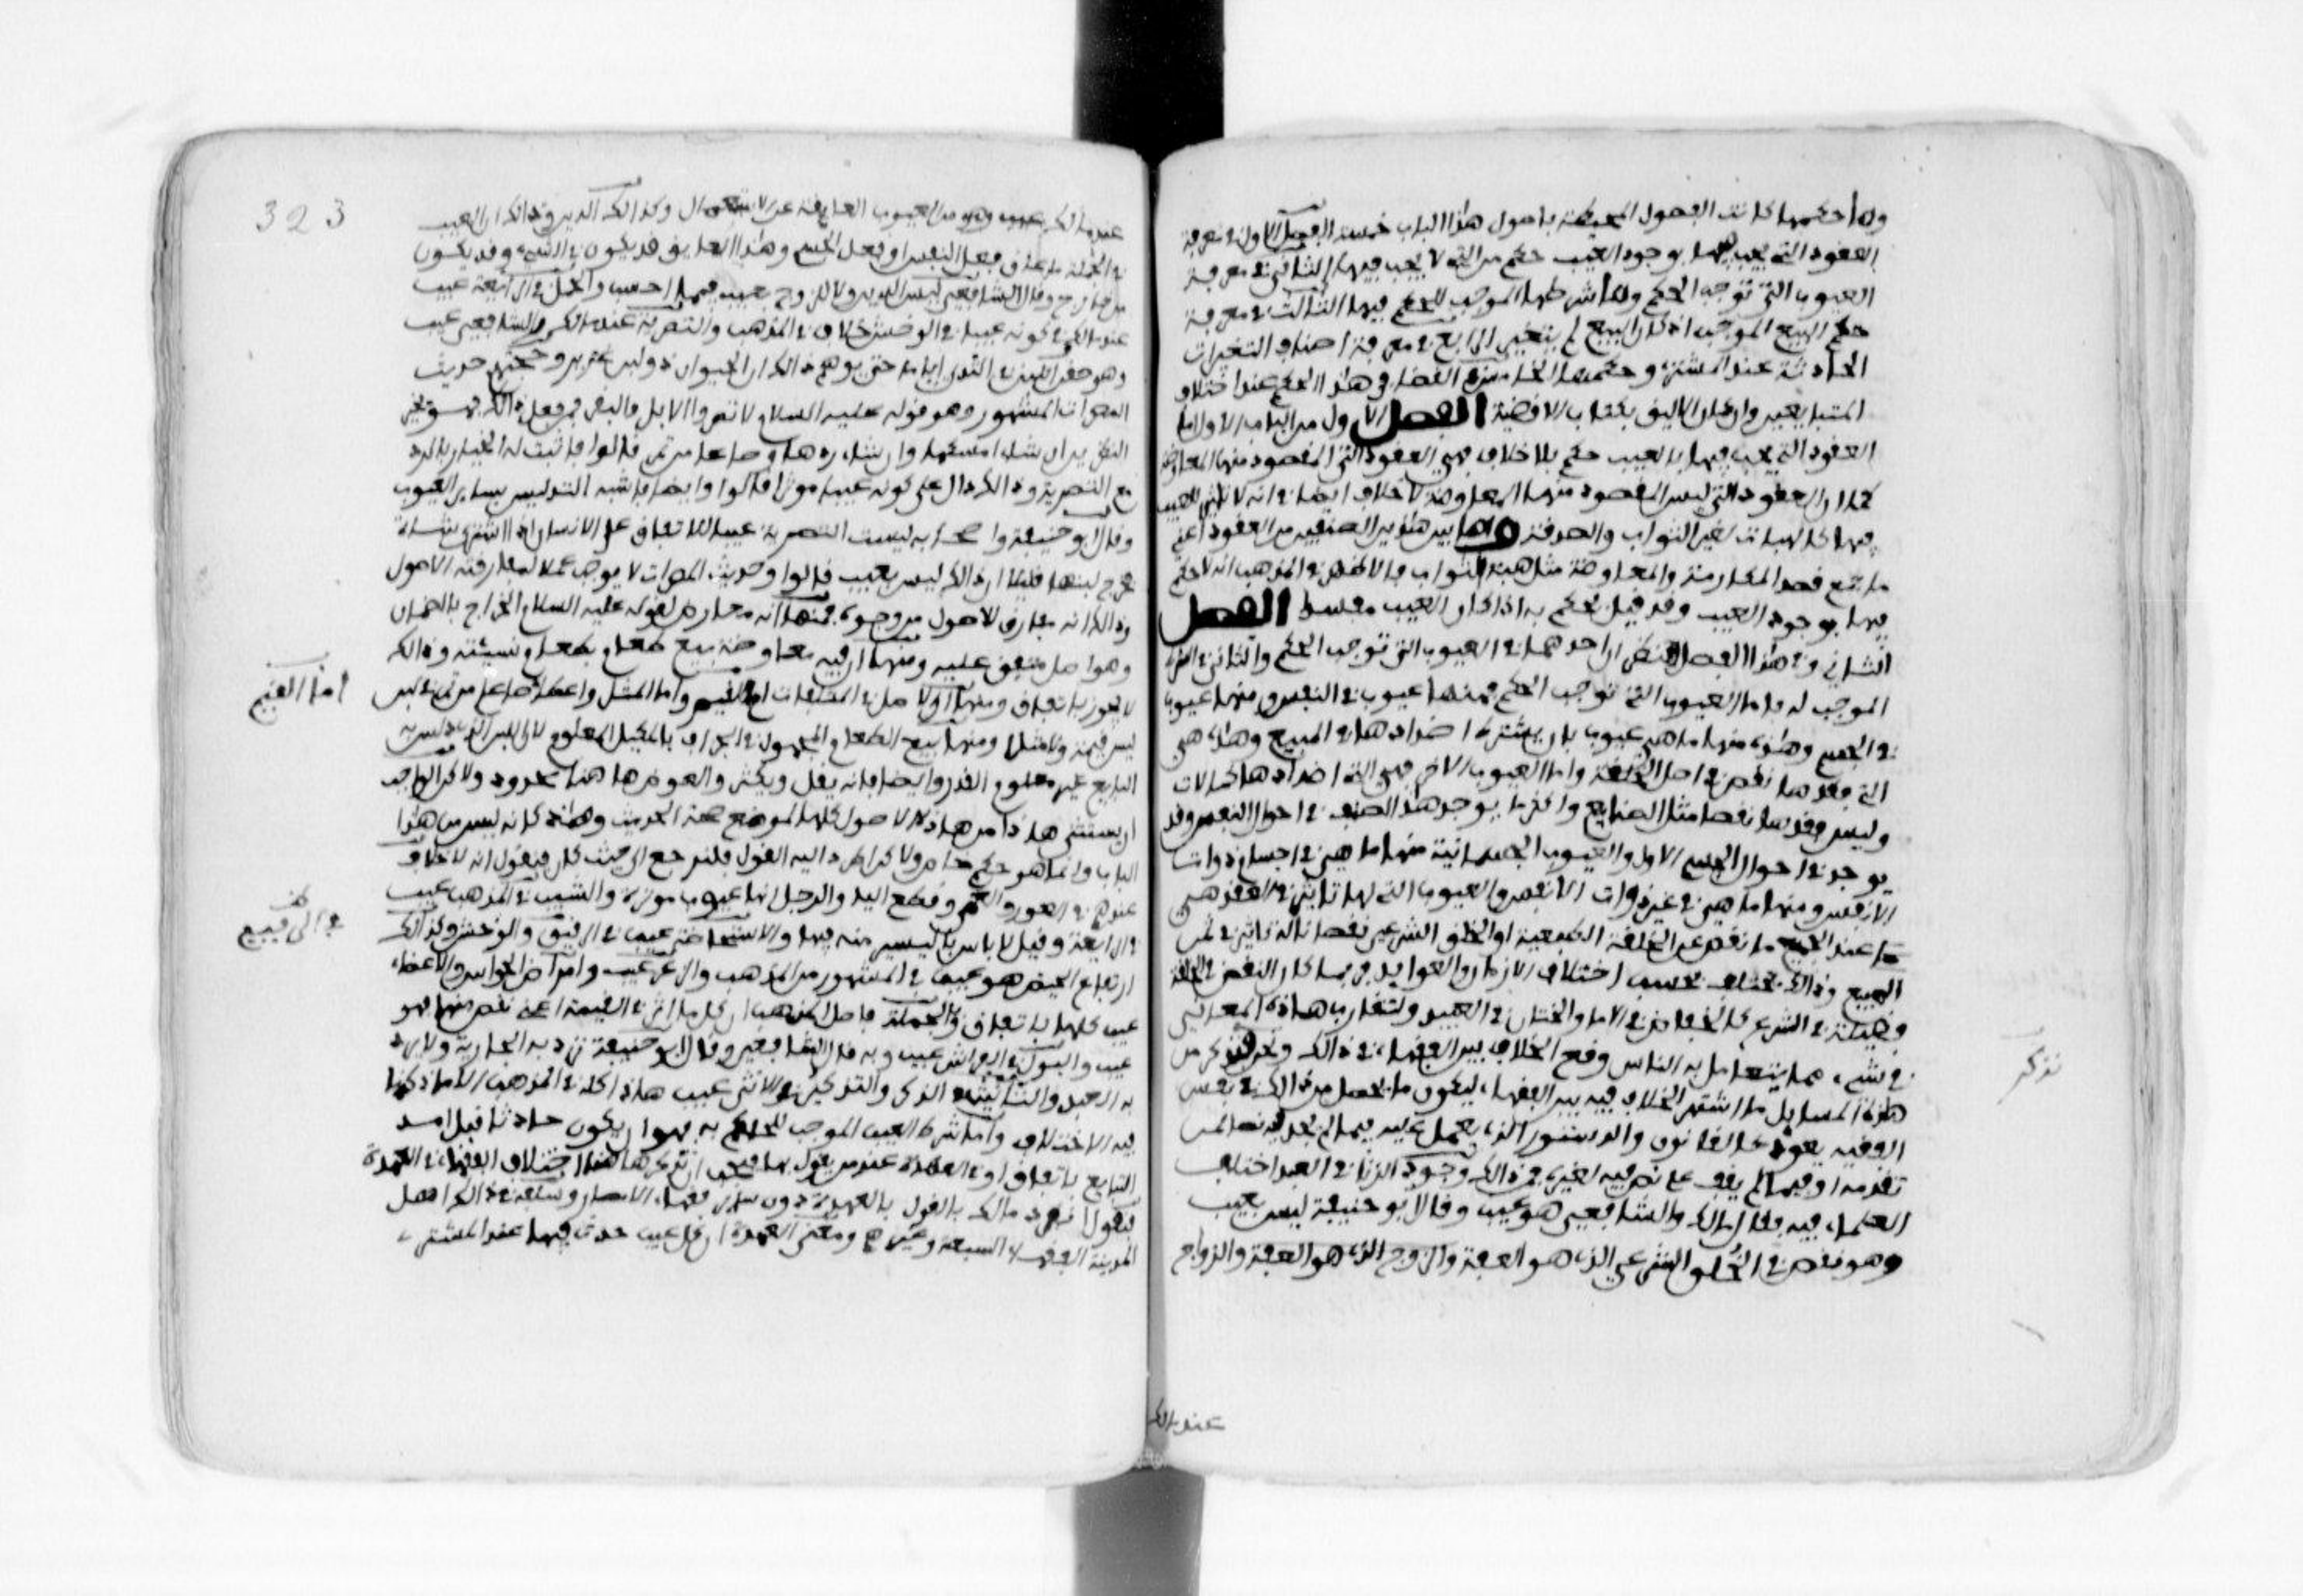 ولما حكمها كانت الفصول المحيطة باصول هذا الباب خمسة الفصل الاول في معرفة
العقود التي يجب فيها بوجود العيب حكم من التي لا يجب فيها الثاني في معرفة
العيوب التي توجب الحكم وما شرطها الموجب للحكم فيها الثالث في معرفة
حكم العيب الموجب اذا كان المبيع لم يتغير الرابع في معرفة اصناف التغيرات
الحادثة عند المشتري وحكمها الخامس في القضا في هذا الحكم عند اختلاف
المتبايعين وان كان الاليق بكتاب الاقضية الفصل الاول من الباب الاول اما
العقود التي يجب فيها بالعيب حكم بلا خلاف فهي العقود التي المقصود منها المعاوضة
كما ان العقود التي ليس المقصود منها المعاوضة لا خلاف ايضا في انه لا تاثير للعيب
فيها كالهبات لغير الثواب والصدقة واما بين هذين الصنفين من العقود اعني
ما جمع قصد المكارمة والمعاوضة مثل هبة الثواب فالاظهر في المذهب انه لا حكم
فيها بوجود العيب وقد قيل يحكم به اذا كان العيب مفسدا الفصل
الثاني وفي هذا الفصل نظران احدهما في العيوب التي توجب الحكم والثاني في الشرط
الموجب له فاما العيوب التي توجب الحكم فمنها عيوب في النفس ومنها عيوب
في الجسم وهذه منها ما هي عيوب بان يشترط اضدادها في المبيع وهذه هي
التي فقدها نقص في اصل الخلقة واما العيوب الاخر فهي التي اضدادها كمالات
وليس فقدها نقصا مثل الصنايع واكثر ما يوجد هذا الصنف في احوال النفس وقد
يوجد في احوال الجسم الاول والعيوب الجسمانية منها ما هي في اجسام ذوات
الانفس ومنها ما هي في غير ذوات الانفس والعيوب التي لها تاثير في العقد هي
عند الجميع ما نقص عن الخلقة الطبيعية او الخلق الشرعي نقصانا له تاثير في ثمن
المبيع وذلك يختلف بحسب اختلاف الازمان والعوايد فربما كان النقص في الخلقة
فضيلة في الشرع كالخفاض في الاما والختان في العبيد ولتقارب هذه المعاني
في شيء مما يتعامل به الناس وقع الخلاف بين الفقهاء في ذلك ونحن نذكر من
هذه المسايل ما اشتهر الخلاف فيه بين الفقهاء ليكون ما يحصل من ذلك في نفس
الفقيه يعود كالقانون والدستور الذي يعمل عليه فيما لم يجد فيه نصا لمن
تقدمه او فيما لم يقف على نص فيه لغيره فمن ذلك وجود الزنا في العبد اختلف
العلماء فيه فقال مالك والشافعي هو عيب وقال ابو حنيفة ليس بعيب
وهو نقص في الخلق الشرعي الذي هو العفة والزوج الذي هو العفة والزواج
نذكر
عند مالك
323
عند مالك عيب وهو من العيوب العايقة عن الاستعمال وكذلك الدين وذلك ان العيب
في الجملة ما عاق فعل النفس او فعل الجسم وهذا العايق قد يكون في الشيء وقد يكون
من خارج وقال الشافعي ليس الدين ولا الزوج بعيب فيما احسب والحمل في الرايعة عيب
عند مالك وفي كونه عيبا في الوخش خلاف في المذهب والتصرية عند مالك والشافعي عيب
وهو حقن اللبن في الثدي اياما حتى يوهم ذلك ان الحيوان ذو لبن غزير وحجتهم حديث
المصرات المشهور وهو قوله عليه السلام لا تصروا الابل والبقر فمن فعل ذلك فهو بخير
النظرين ان شاء امسكها وان شاء ردها وصاعا من تمر قالوا فاثبت له الخيار بالرد
مع التصرية وذلك دال على كونه عيبا موثرا قالوا وايضا فاشبه التدليس بساير العيوب
وقال ابو حنيفة واصحابه ليست التصرية عيبا للاتفاق على الانسان اذا اشترى شاة
فخرج لبنها قليلا ان ذلك ليس بعيب قالوا وحديث المصرات لا يوجب عملا لمفارقته الاصول
وذلك انه مفارق للاصول من وجوه فمنها انه معارض لقوله عليه السلام الخراج بالضمان
وهو اصل متفق عليه ومنها ان فيه معاوضة بيع طعام بطعام نسيئة وذلك
لا يجوز باتفاق ومنها ان الاصل في المتلفات اما القيم واما المثل واعطاء صاع من تمر في لبن
ليس قيمة ولا مثلا ومنها بيع الطعام المجهول في الجزاف بالمكيل المعلوم لان اللبن الذي دلس به
البايع غير معلوم القدر وايضا فانه يقل ويكثر والعوض هاهنا محدود ولاكن الواجب
ان يستثنى هاذا من هاذه الاصول كلها لموضع صحة الحديث وهذه كانه ليس من هذا
الباب وانما هو حكم خاص ولاكن اطرد اليه القول فلنرجع الى حيث كان فنقول انه لا خلاف
عندهم في العور والعمى وقطع اليد والرجل انها عيوب موثرة والشيب في المذهب عيب
في الرايعة وقيل لا باس باليسير منه فيها والاستحاضة عيب في الرقيق والوخش وكذلك
ارتفاع الحيض هو عيب في المشهور من المذهب والزعر عيب وامراض الحواس والاعضاء
عيب كلها باتفاق وبالجملة فاصل المذهب ان كل ما اثر في القيمة اعني نقص منها فهو
عيب والبول في الفراش عيب وبه قال الشافعي وقال ابو حنيفة ترد به الجارية ولا يرد
به العبد والتانيث في الذكر والتذكير في الانثى عيب هذا كله في المذهب الا ما ذكرنا
فيه الاختلاف واما شرط العيب الموجب للحكم به فهو ان يكون حادثا قبل امد
التبايع باتفاق او في العهدة عند من يقول بها فيجب ان نذكر هاهنا اختلاف الفقهاء في العهدة
فنقول انفرد مالك بالقول بالعهدة دون ساير فقهاء الامصار وسلفه في ذلك اهل
المدينة الفقهاء السبعة وغيرهم ومعنى العهدة ان كل عيب حدث فيها عند المشتري
اما القيم